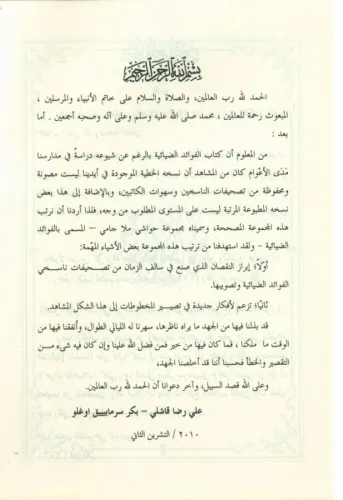 بسم الله الرحمن الرحيم
الحمد لله رب العالمين، والصلاة والسلام على خاتم الأنبياء والمرسلين ،
المبعوث رحمة للعالمين ، محمد صلى الله عليه وسلم وعلى آله وصحبه أجمعين . أما
بعد :
من المعلوم أن كتاب الفوائد الضيائية بالرغم عن شيوعه دراسةً في مدارسنا
مَدَى الأعْوام كان من المشاهد أن نسخه الخطية الموجودة في أيدينا ليست مصونة
ومحفوظة من تصحيفات الناسخين وسهوات الكاتبين، وبالإضافة إلى هذا بعض
نسخه المطبوعة المرتبة ليست على المستوى المطلوب من وجه، فلذا أردنا أن نرتب
هذه المجموعة المصححة، وسميناه بمجموعة حواشي ملا جامي – المسمى بالفوائد
الضيائية – ولقد استهدفنا من ترتيب هذه المجموعة بعض الأشياء المهّمة:
أولاً؛ إبراز النقصان الذي صنع في سالف الزمان من تصحيفات ناسخي
الفوائد الضيائية وتصويبها.
ثانيًا؛ تزعم لأفكار جديدة في تصيير المخطوطات إلى هذا الشكل المشاهد.
قد بذلنا فيها من الجهد ما يراه ناظرها، سهرنا له الليالي الطوال، وأنفقنا فيها من
الوقت ما ملكنا ، فما كان فيها من خير فمن فضل الله علينا وإن كان فيه شيء من
التقصير والخطأ فحسبنا أننا قد أخلصنا الجهد،
وعلى الله قصد السبيل، وآخر دعوانا أن الحمد لله رب العالمين.
علي رضا قاشلي – بكر سرماييق اوغلو
٢٠١٠ / التشرين الثاني